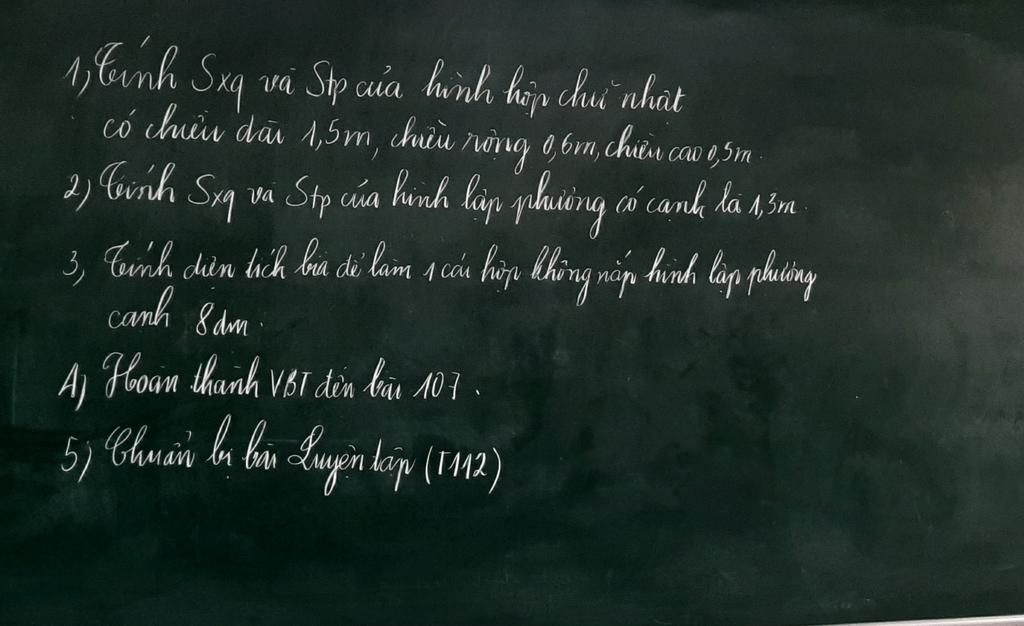 1, Tính Sxq và Stp của hình hộp chữ nhật
có chiều dài 1,5m, chiều rộng 0,6m, chiều cao 0,5m.
2) Tính Sxq và Stp của hình lập phương có cạnh là 1,3m.
3, Tính diện tích bìa để làm 1 cái hộp không nắp hình lập phương
cạnh 8dm.
4) Hoàn thành VBT đến bài 107.
5) Chuẩn bị bài Luyện tập (T112)